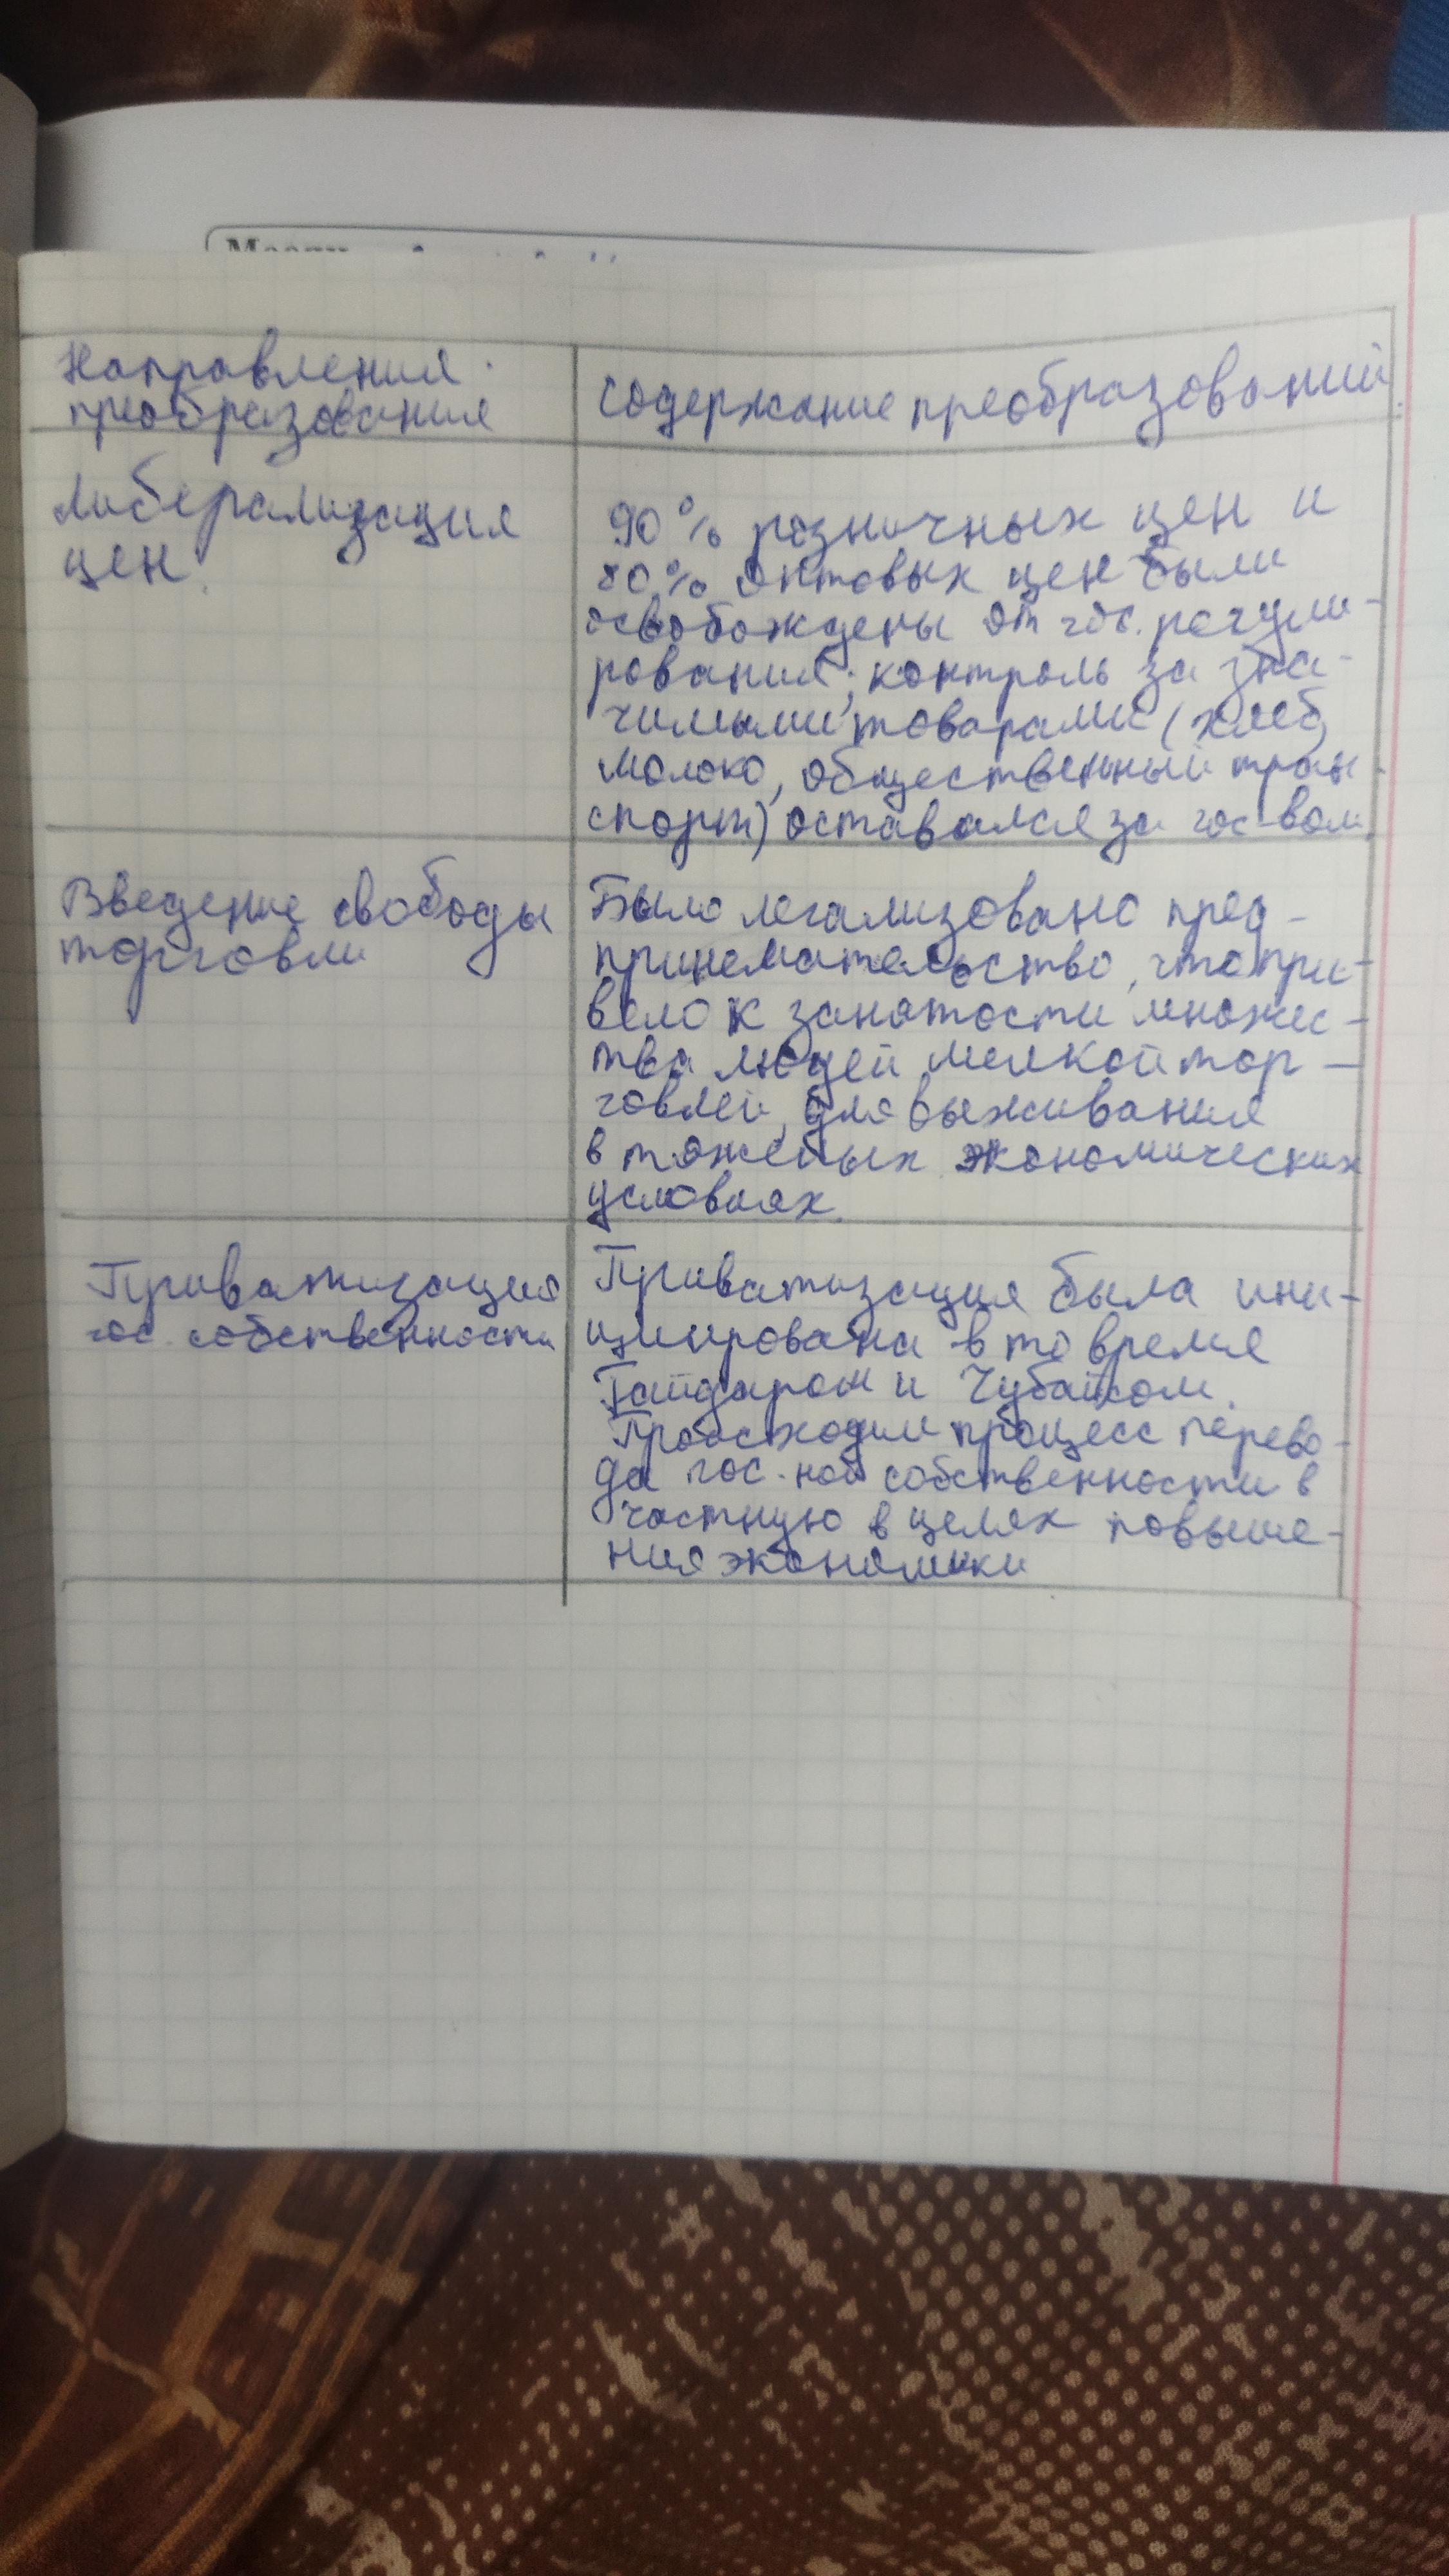 Направления
преобразования
Содержание преобразований.
Либерализация
цен.
90% розничных цен и
80% оптовых цен были
освобождены от гос. регули-
рования; контроль за зна-
чимыми товарами (хлеб,
молоко, общественный тран-
спорт) оставался за гос-вом.
Введение свободы
торговли
Было легализовано пред-
принемательство, что при-
вело к занятости множес-
тва людей мелкой тор-
говлей, для выживания
в тяжелых экономических
условиях.
Приватизация
гос. собственности
Приватизация была ини-
циирована в то время
Гайдаром и Чубайсом.
Происходил процесс перево-
да гос-ной собственности в
частную в целях повыше-
ния экономики